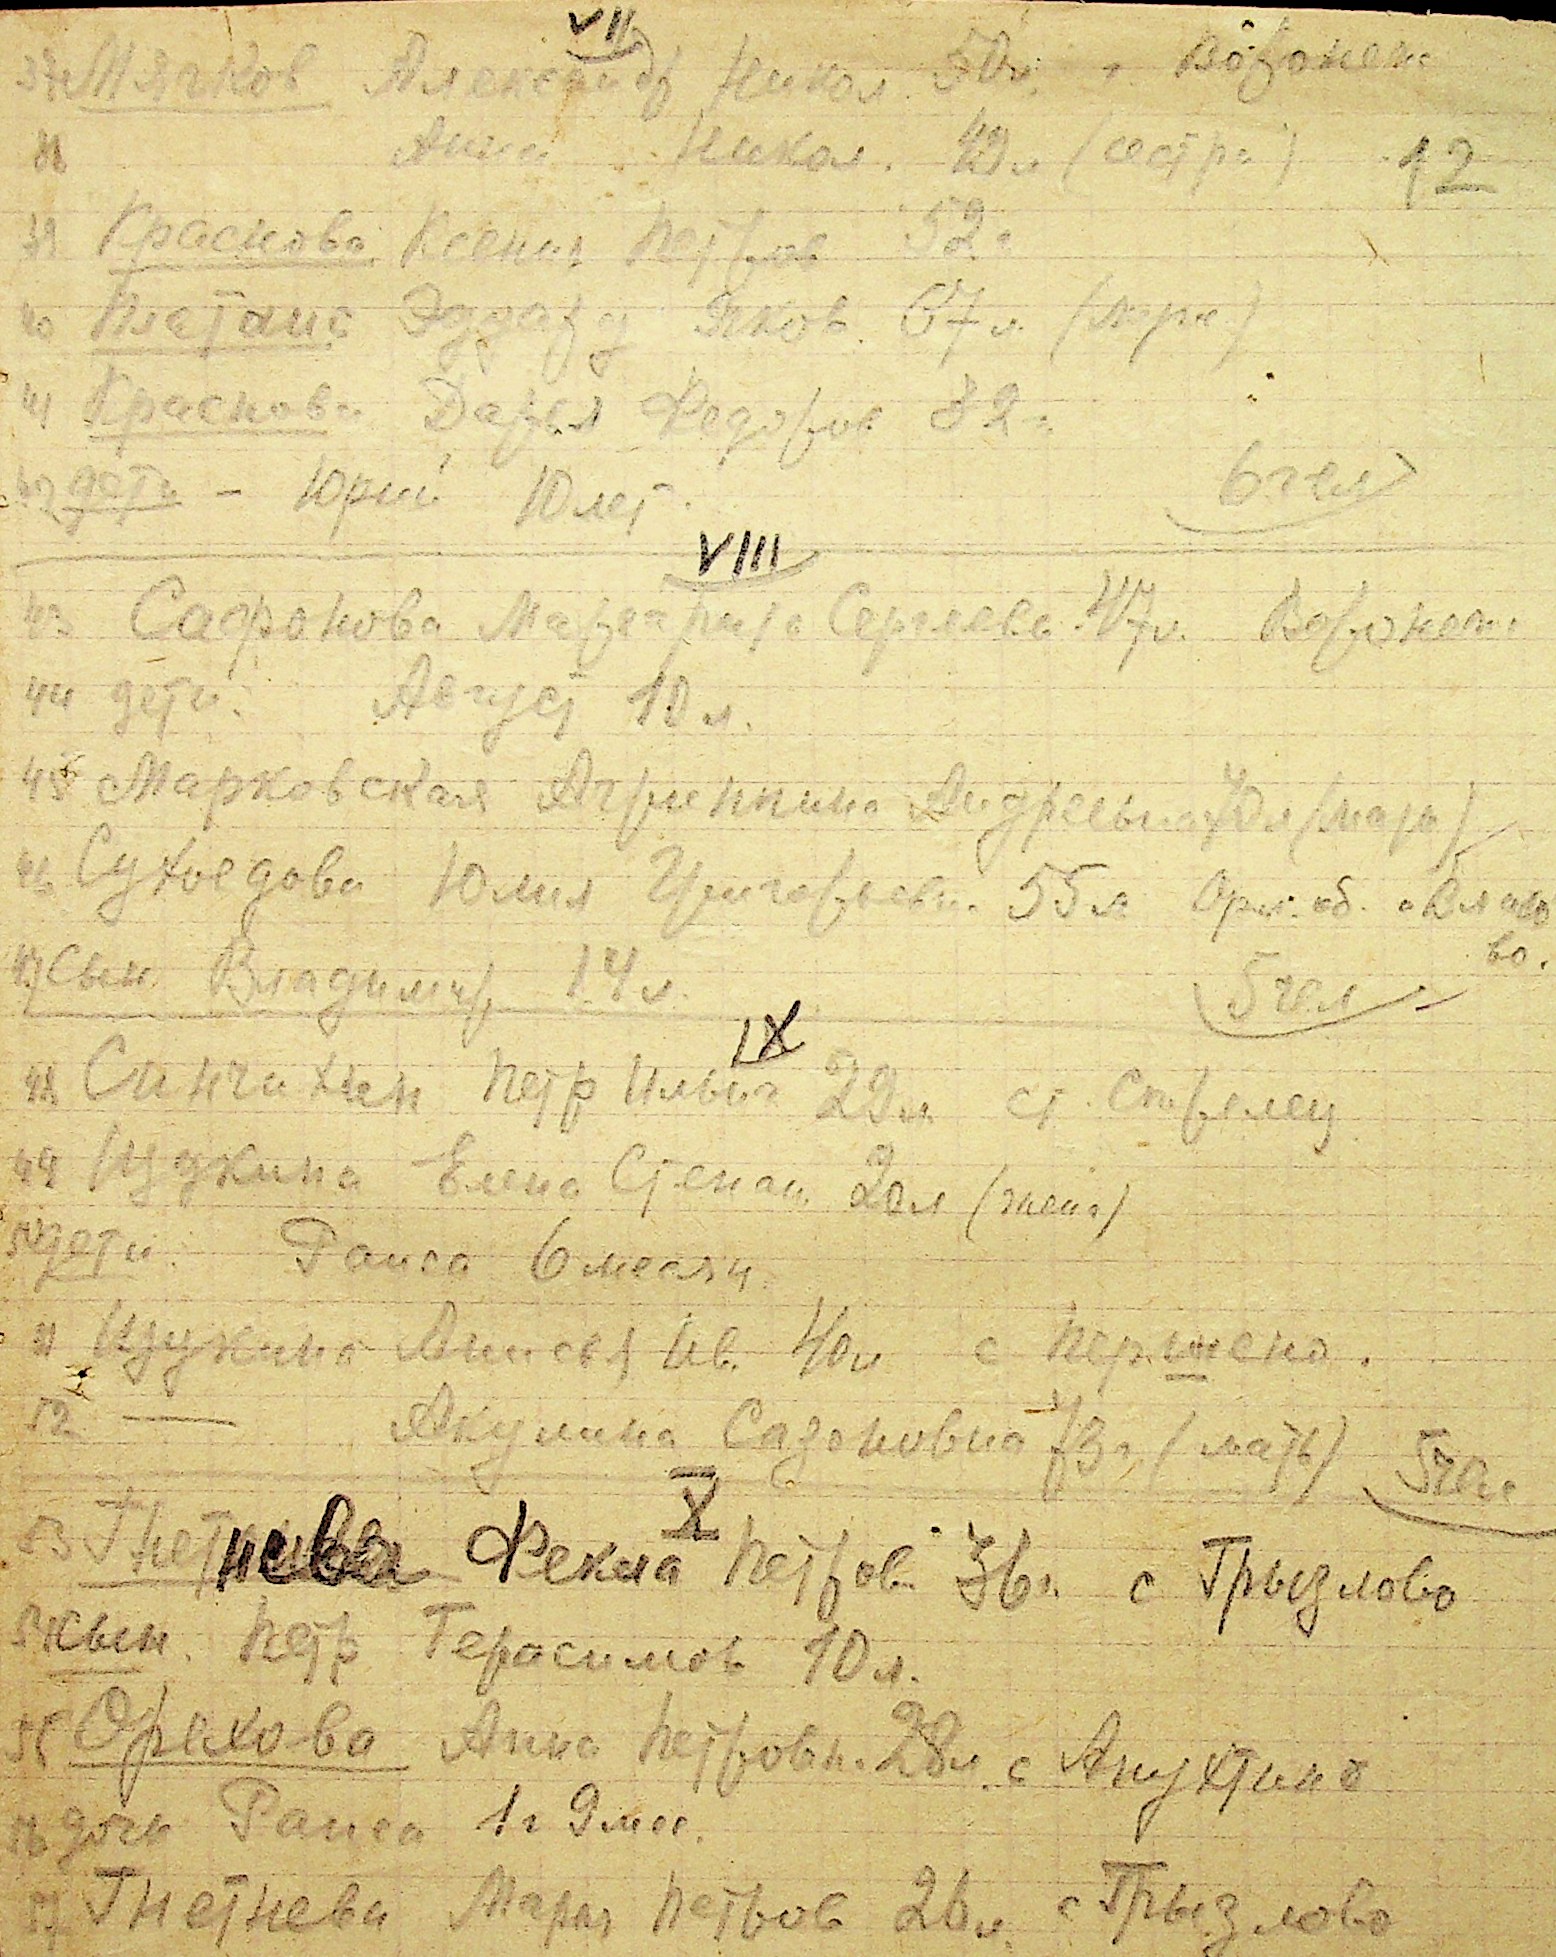 VII
37 Мячков Александр Никол. 50л. г. Воронеж
38 Анна Никол. 42л (сестра) 12
39 Краснова Ксения Петров 52г
40 Эдуард Яков. 67л. (муж)
41 Краснова Дарья Федоров 82г
42 дети - Юрий 10 лет. 6 чел
VIII
43 Сафонова Маргарита Сергеев. 47л. Воронеж
44 дети: Август 10 л.
45 Марковская Агрипина Андреевна 70л (мать)
46 Сухоедова Юлия Григорьевн. 55л Орл. об.
во.
47 сын Владимир 14 л. 5 чел
IX
48 Синчихин Петр Ильич 29л ст. Стрелец
49 Щукина Елена Степан. 20л (жена)
50 дети: Раиса 6 месяц.
51 Щукина Анисья Ив. 40л с Першено.
52 — Акулина Сафоновна 73г (мать) 5 чел
X
53 Гнетнева Фекла Петров. 36л. с Грызлово
54 сын. Петр Герасимов 10 л.
55 Орехова Анна Петровн. 28л. с Анухтино
56 дочь Раиса 1г 9 мес.
57 Гнетнева Мария Петров 26л. с Грызлово